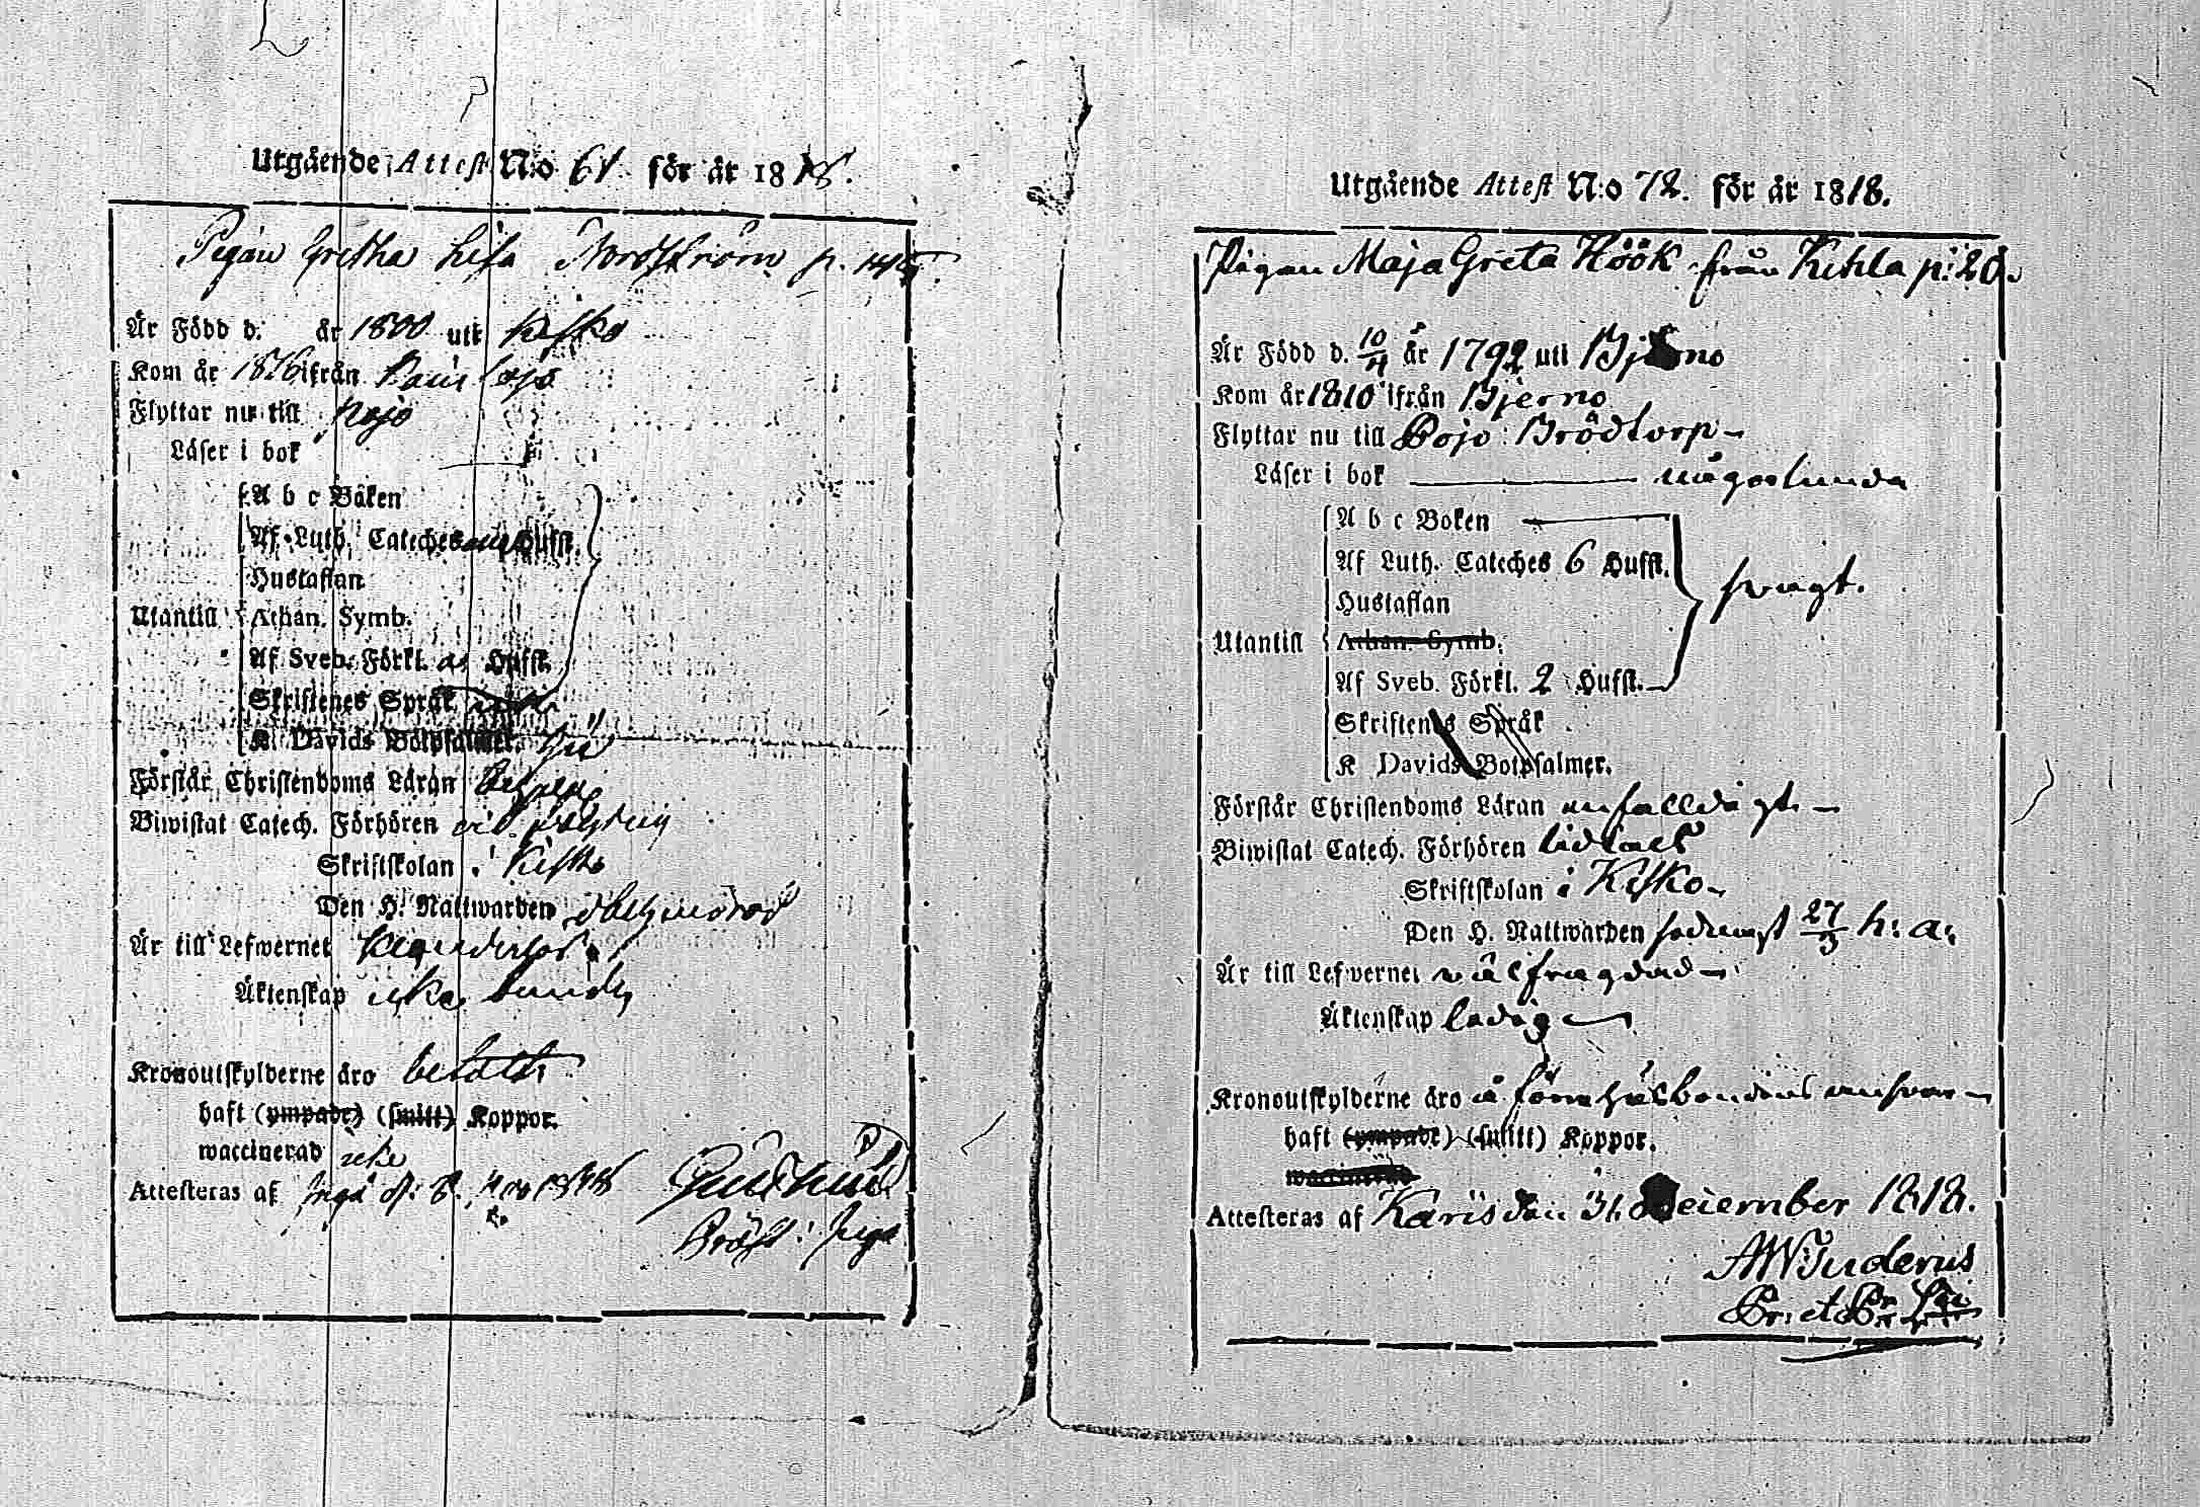 Utgående Attest N:o 61 för år 1818.
Pigan Gretha Lisa Nordström p.
Är Född d. år 1800 uti Kisko
Kom år 1816 ifrån Lojo
Flyttar nu till Pojo
Läser i bok
A b c Båken
Af Luth. Cateches Hufst.
Hustaflan
Utantill Athan. Symb.
Af Sveb. Förkl. Hufst.
Skriftenes Språk
K. Davids Botpsalmer.
Förstår Christendoms Läran
Biwistat Catech. Förhören
Skriftskolan i Kisko
Den H. Nattwarden
Är till Lefwernet
Äktenskap icke bunden
Kronoutskylderne äro betalte
haft (ympade) (smitt) Koppor.
waccinerad icke
Attesteras af Ingå
Utgående Attest N:o 72. för år 1818.
Pigan Maja Greta Höök från Kehla p: 20.
Är Född d. 10/4 år 1792 uti Bjerno
Kom år 1810 ifrån Bjerno
Flyttar nu till Pojo: Brödtorp
Läser i bok någorlunda
A b c Boken
Af Luth. Cateches 6 Hufst. svagt.
Hustaflan
Utantill Athan. Symb.
Af Sveb. Förkl. 2 Hufst.
Skriftenes Språk
K Davids Botpsalmer.
Förstår Christendoms Läran enfalldigt
Biwistat Catech. Förhören
Skriftskolan i Kisko
Den H. Nattwarden sednast 27/3 h: a:
Är till Lefwernet välfrägdad
Äktenskap ledig
Kronoutskylderne äro å förra husbondens ansvar
haft (ympade) (smitt) Koppor.
waccinerad
Attesteras af Karis den 31. December 1818.